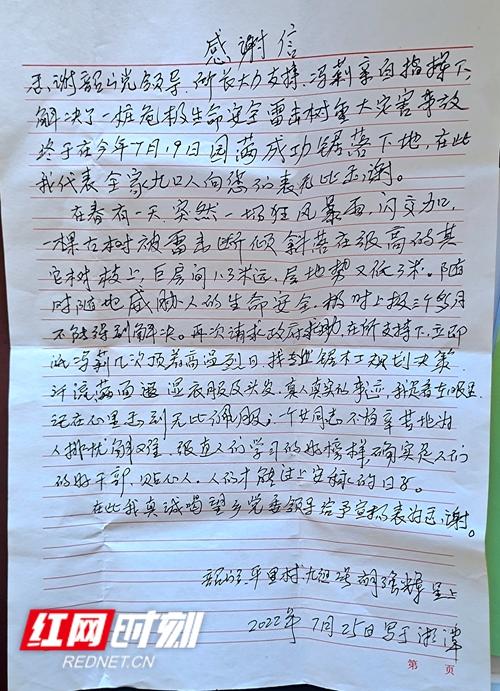 感谢信
感谢韶山党领导、所长大力支持、冯莉亲自指挥下
解决了一桩危极生命安全雷击树重大灾害事故
终于在今年7月19日圆满成功锯落下地,在此
我代表全家九口人向您们表无比感谢。
在春有一天,突然一场狂风暴雨,闪交加,
一棵古树被雷击断倾斜落在级高的其
它树枝上,巨房间1.3米远,屋地势又低3米。随
时随地威胁人的生命安全,极时上报三个多月
不能得到解决。再次请求政府求助,在所支持下,立即
派冯莉几次顶着高温烈日,找专业锯木工规划决策
汗流满面逐湿衣服及头发,真人真实的事迹,我是看在眼里
记在心里感到无比佩服;一个女同志不怕辛苦地为
人排忧解难,级直人们学习的好榜样,确实是人们
的好干部,贴心人。人们才能过上安稳的日子。
在此我真诚喝望乡党委领导给予宣扬表的感谢。
韶山 平里村九组 胡 呈上
2022年7月25日写于湘潭
红网时刻
REDNET.CN
第 页